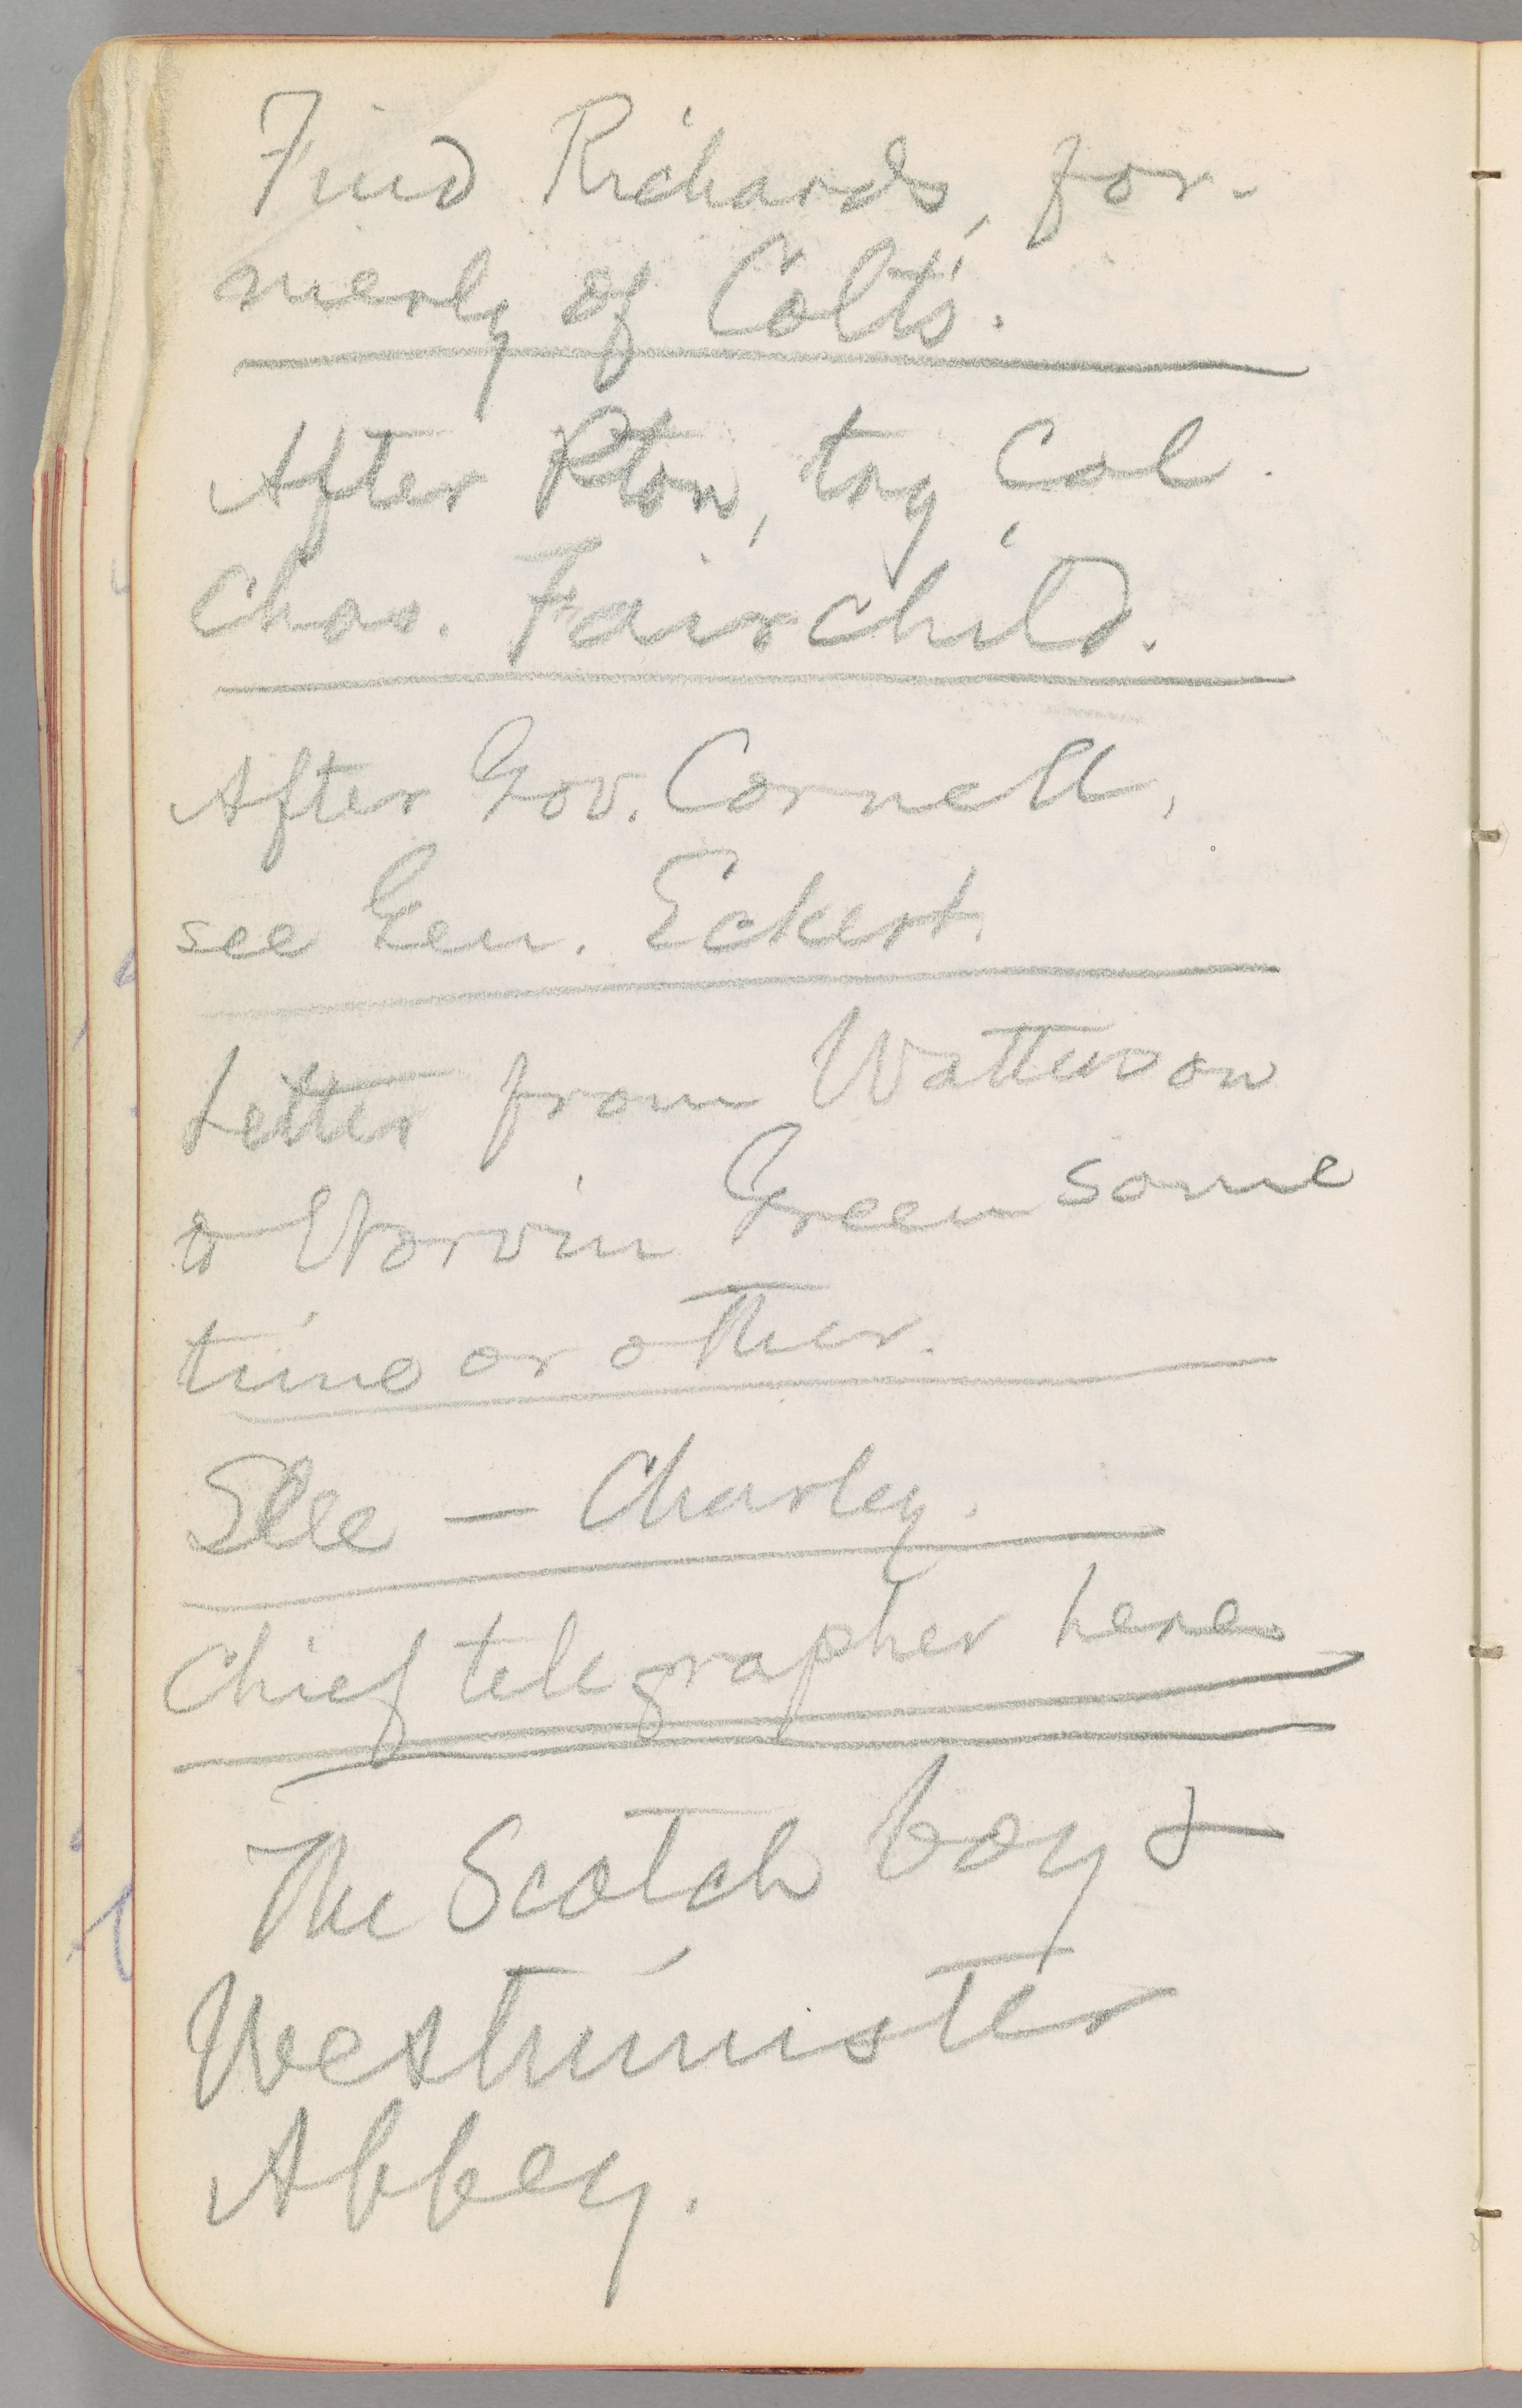 Find Richards, for-
merly of Colt's.
After Pton, try Col.
Chas. Fairchild.
After Gov. Cornell,
see Gen. Eckert.
Letter from Watterson
to Norvin Green some
time or other.
See — Charley.
Chief telegrapher here
The Scotch boy &
Westminister
Abbey.